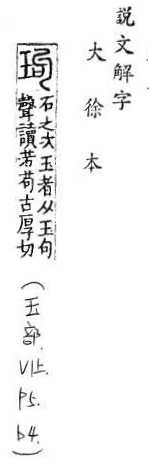 説文解字
大徐本
玽
石之次玉者从玉句
聲讀若苟古厚切
(玉部. V1上. P5. b4.)